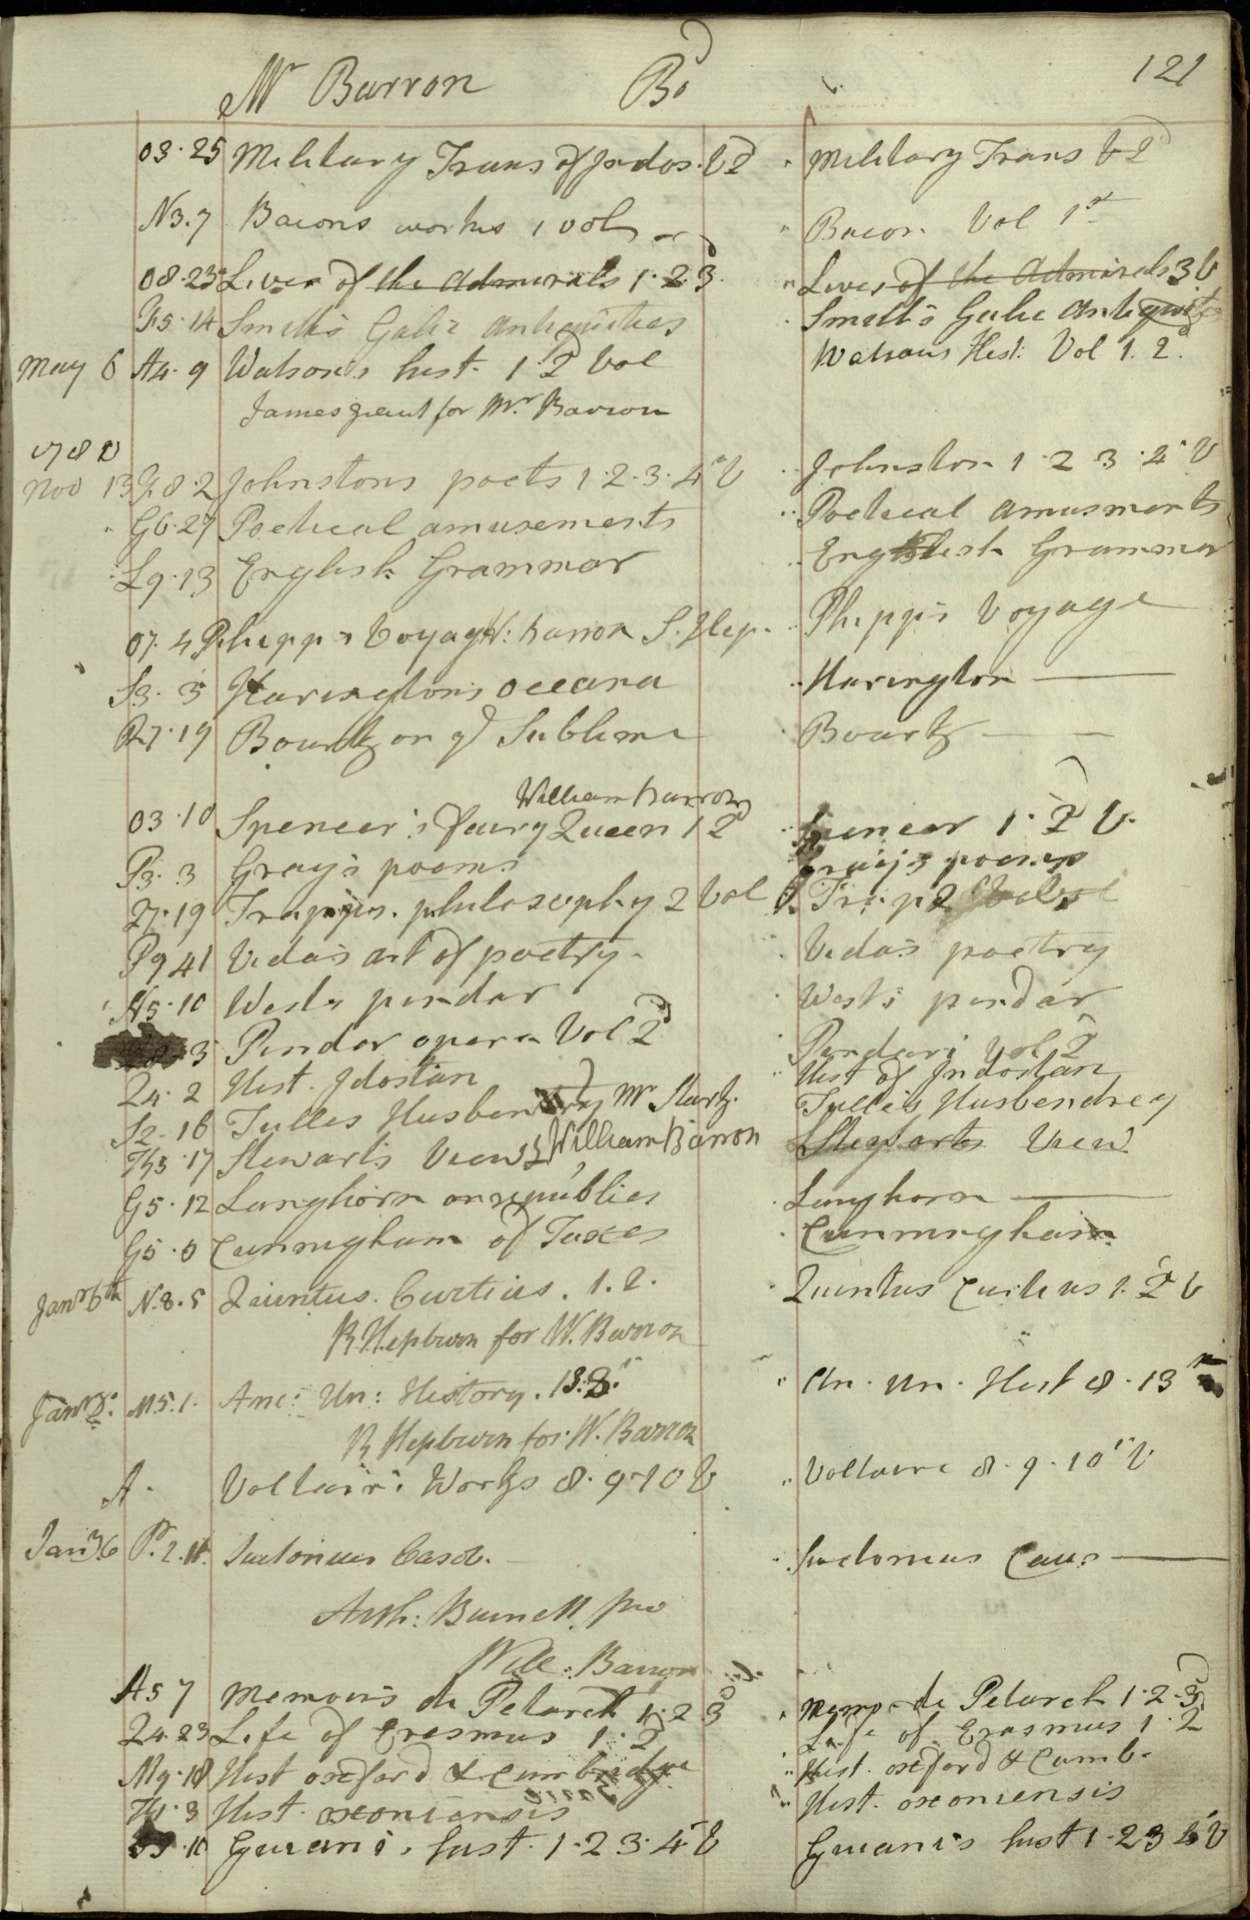 Mr Barron Bo 121
03.25 Military Trans of Indos. V 2d Military Trans V 2d
N3.7 Bacons works 1 vol Bacon Vol 1st
08.23 Lives of the Admirals 1.2.3 Lives of the Admirals 3 V
14 Smith's Galic antiquities Smith's Galic Antiquit
May 6 A4.9 Watson's hist. 1 2d Vol Watsons Hist: Vol 1. 2d.
James grant for Mr. Barron
1780
Nov 13 G.8.2 Johnstons poets 1.2.3.4 V Johnston 1.2 3.4 V
G6.27 Poetical amusements Poetical amusments
L9.13 English Grammar English Grammar
07.4 Phipp's Voyag W: Barron S. Hep. Phipp's Voyage
S3.3 Haringtons oceana Harington
19 Bourk on ye Sublime Bourk
William Barron
03.10 Spencer's fairy Queen 1 2d Spencer 1. 2d V.
P3.3 Gray's poems Gray's poems
19 philosophy 2 Vol
P9 41 Vida's art of poetry Vida's poetry
N5.10 Wests pindar West's pindar
3 Pindar opera Vol 2d Pindari Vol 2d
Z4.2 Hist. Idostan Hist of Indostan
S2.16 Tulles Husbendry Mr Tulle's Husbendrey
17 Stewarts View William Barron Stewarts View
G5.12 Langhorn on republics Langhorn
G5.0 Cunningham of Taxes Cunningham
Janr 6th N.8.5 Quintus Curtius. 1.2. Quintus Curtius 1. 2d V
R Hepburn for W. Barron
Janr 8: M5.1. Anc: Un: History. 13.8. An. Un. Hist 8.13
R Hepburn for W. Barron
A. Voltair's Works 8.9.10 V Voltaire 8.9.10 V
P.2. Suetonius Casob. Suetonius Caus
Arth: Burnett pro
Will: Barron
A5 7 Memoirs de Petarch 1.2 3d Memo de Petarch 1.2.3d
Z4.23 Life of Erasmus 1.2 Life of Erasmus 1.2
M9.18 Hist oxford & Cambridge Hist. oxford & Camb.
3 Hist. oxoniensis Hist. oxoniensis
10 Guiani's hist. 1.2 3.4 V Guianis hist 1.2 3 4 V